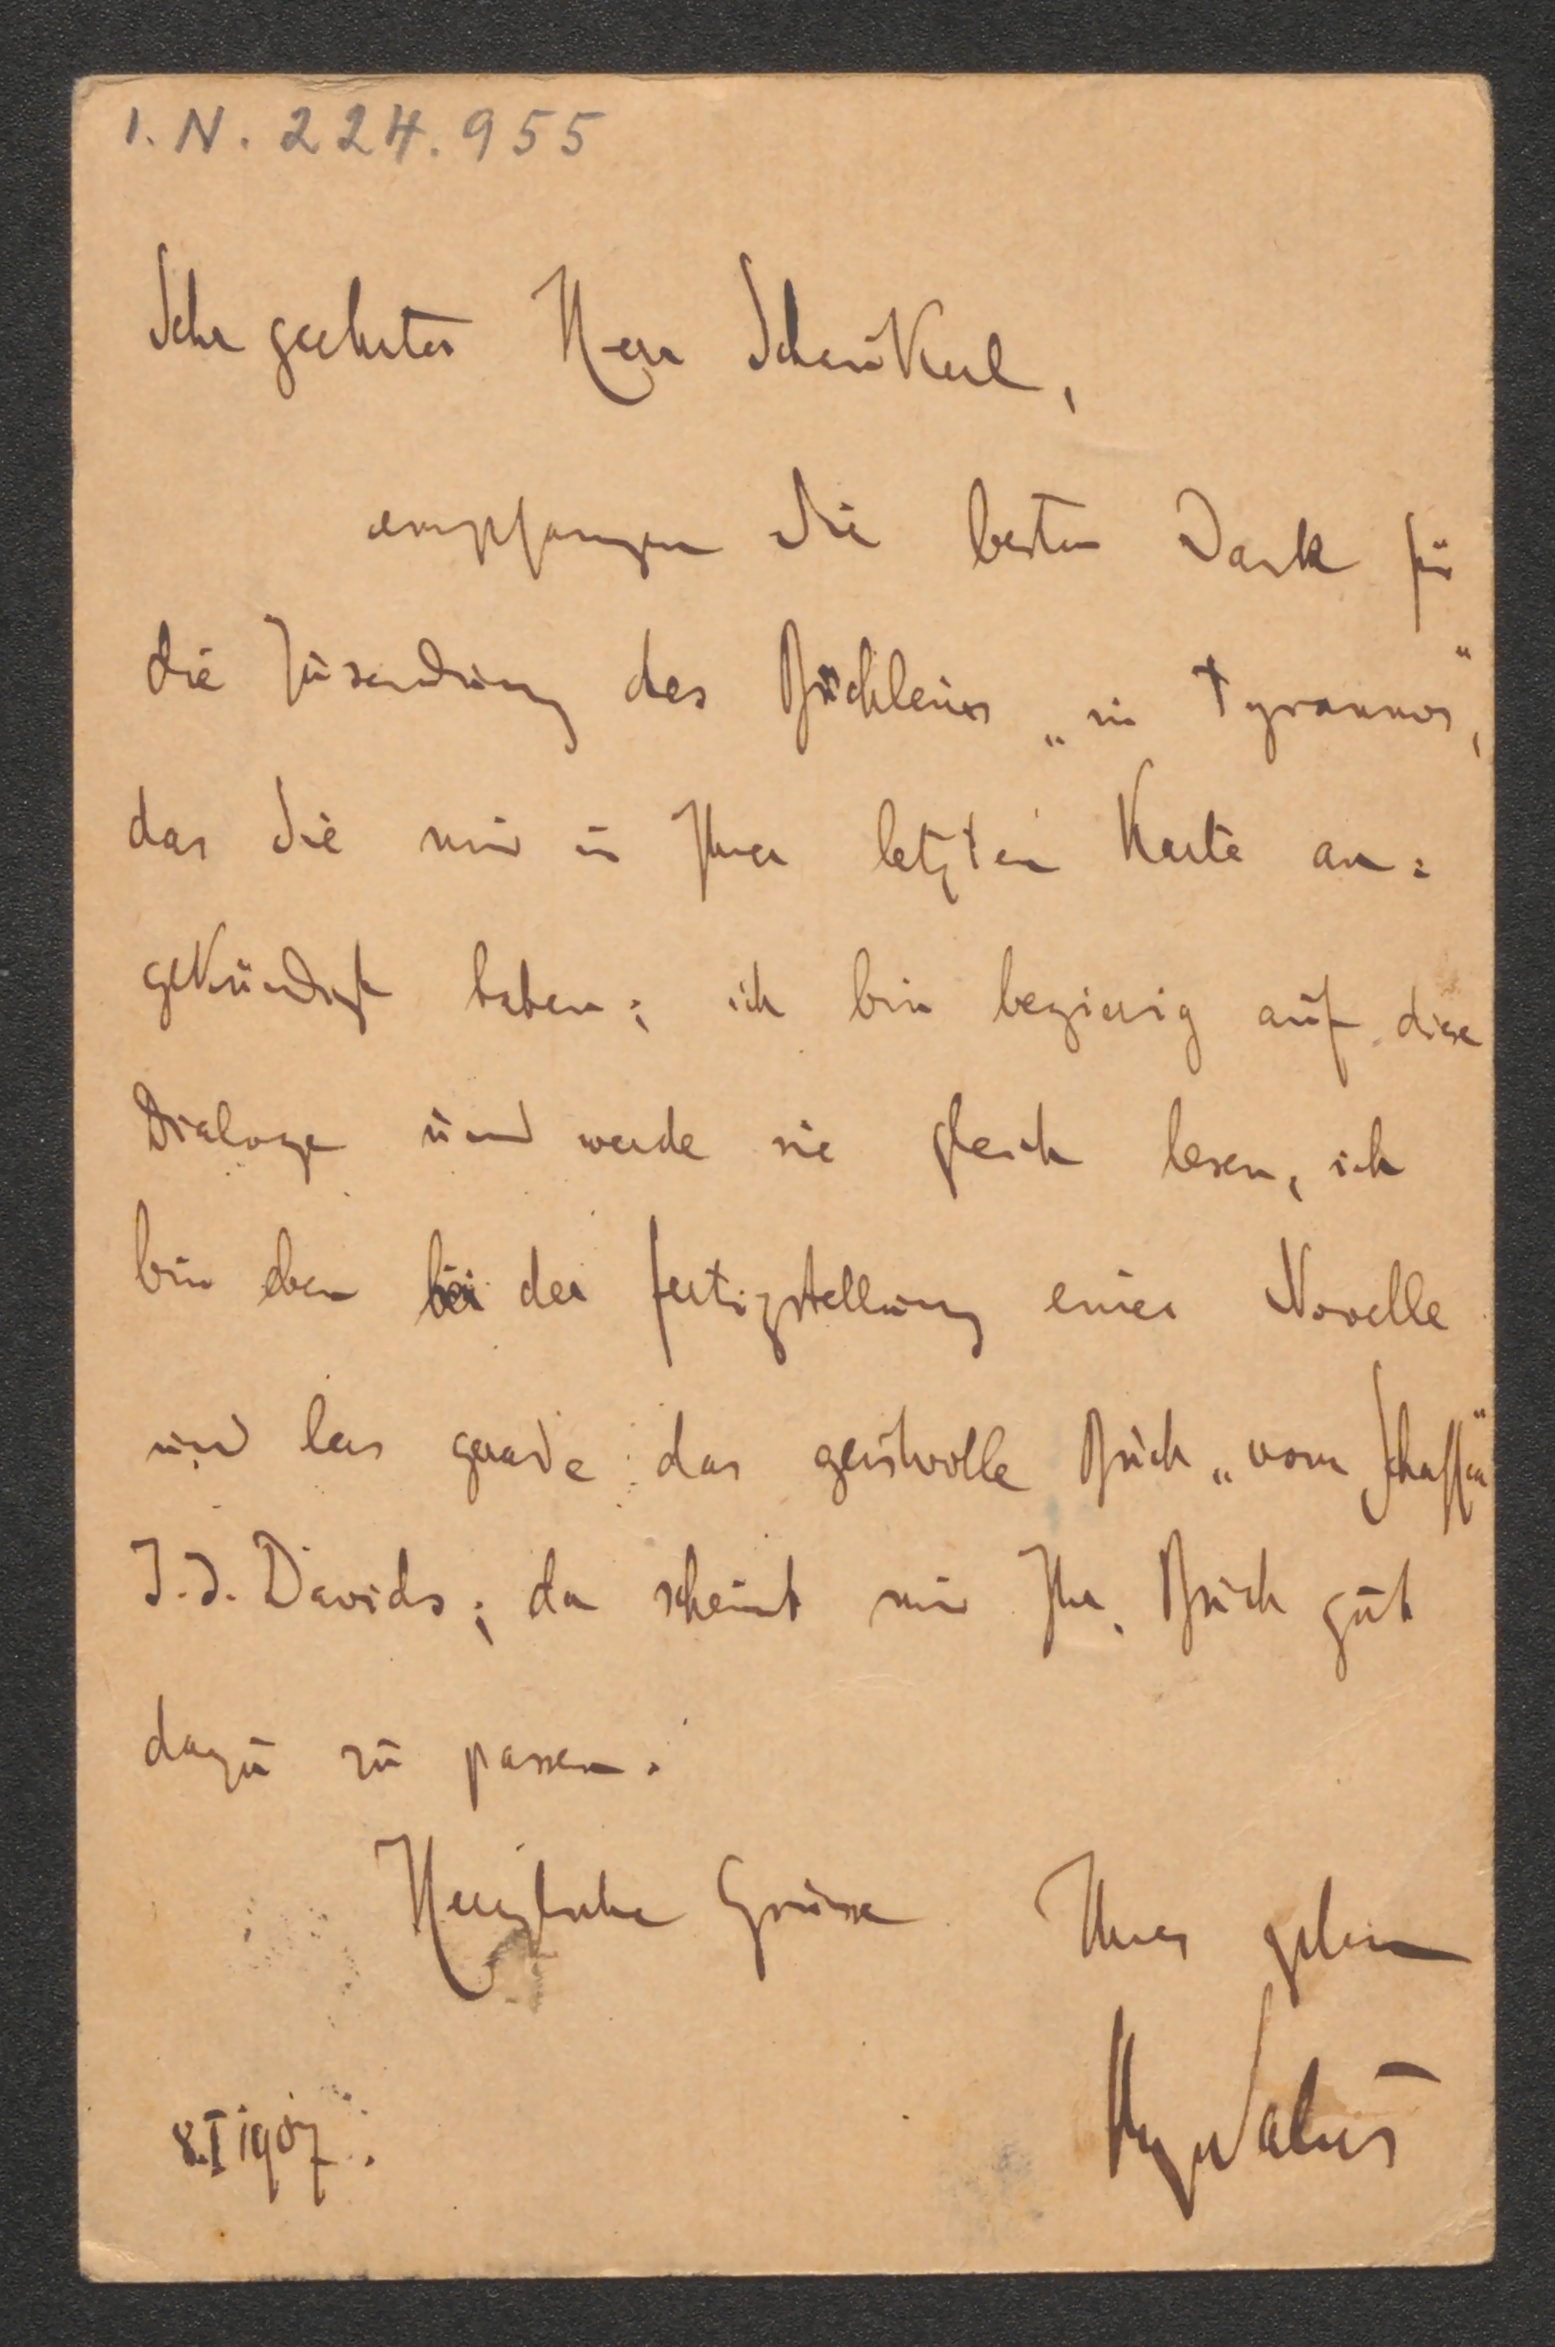 I.N. 224.955
Sehr geehrter Herr Schaukal,
empfangen Sie besten Dank für
die Zusendung des Büchleins „in tyrannos“,
das Sie mir in Ihrer letzten Karte an=
gekündigt haben; ich bin begierig auf diese
Dialoge und werde sie gleich lesen, ich
bin eben bei der Fertigstellung einer Novelle
und las gerade das geistvolle Buch „vom Schaffen“
J.J. Davids; da scheint mir Ihr Buch gut
dazu zu passen.
Herzliche Grüsse Ihres ergebenen
Hugo Salus
8.I 1907.